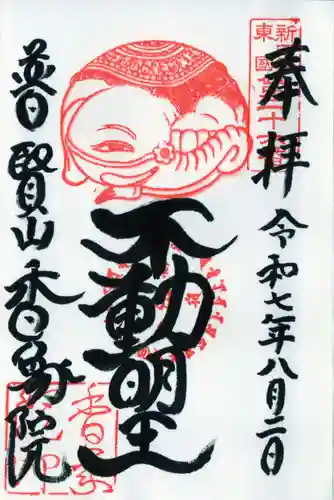 奉拝
令和七年八月二日
不動明王
普賢山香象院
新東
香象